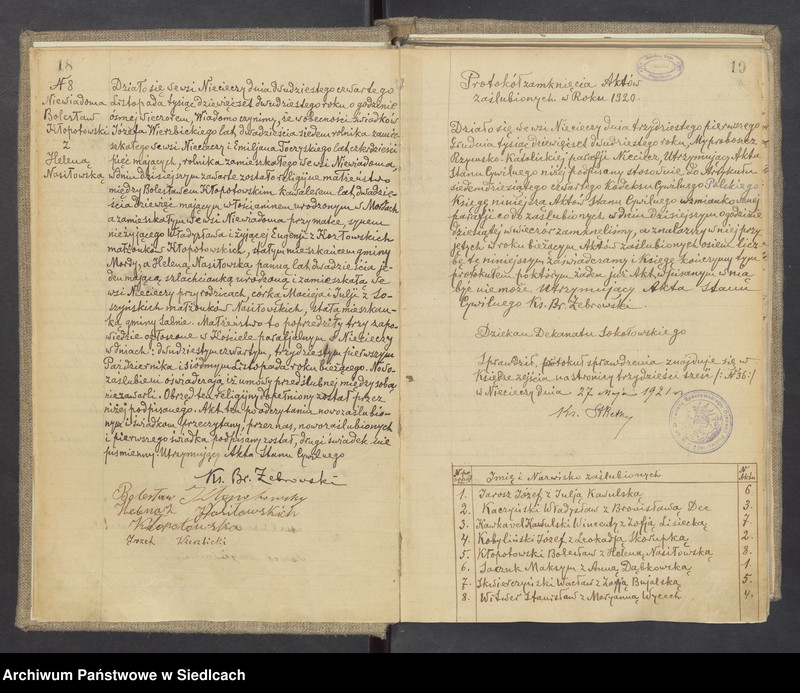 18
№ 8
Niewiadoma
Bolesław
Kłopotowski
z
Heleną
Nasiłowską
Działo się we wsi Niecieczy dnia dwudziestego czwartego
Listopada tysiąc dziewięćset dwudziestego roku o godzinie
ósmej wieczorem, Wiadomo czynimy, że w obecności świadków
Józefa Wierzbickiego lat dwadzieścia siedem rolnika zamie-
szkałego we wsi Niecieczy i Emiljana Toczyskiego lat czterdzieści
pięć mających, rolnika zamieszkałego we wsi Niewiadoma,
w dniu dzisiejszym zawarte zostało religijne małżeństwo
między Bolesławem Kłopotowskim kawalerem lat dwadzie-
ścia dziewięć mającym włościaninem urodzonym w Mordach
a zamieszkałym we wsi Niewiadoma przy matce, synem
nieżyjącego Władysława i żyjącej Eugenji z Kozłowskich
małżonków Kłopotowskich, stałym mieszkańcem gminy
Mordy, a Heleną Nasiłowską panną lat dwadzieścia je-
den mającą szlachcianką urodzoną i zamieszkałą we
wsi Niecieczy przy rodzicach, córką Macieja i Julji z Ło-
szyńskich małżonków Nasiłowskich, stałą mieszkan-
ką gminy Sabnie. Małżeństwo to poprzedziły trzy zapo-
wiedzie ogłoszone w Kościele parafjalnym w Niecieczy
w dniach: dwudziestym czwartym, trzydziestym pierwszym
Października i siódmym Listopada roku bieżącego. Nowo-
zaślubieni oświadczają iż umowy przedślubnej między sobą
nie zawarli. Obrzęd ten religijny dopełniony został przez
niżej podpisanego. Akt ten po odczytaniu nowozaślubio-
nym i świadkom przeczytany, przez nas, nowozaślubionych
i pierwszego świadka podpisany został, drugi świadek nie
piśmienny Utrzymujący Akta Stanu Cywilnego
Ks. Br. Żebrowski
Bolesław Kłopotowski
Helena z Nasiłowskich
Kłopotowska
Józef Wierzbicki
19
Protokół zamknięcia Aktów
zaślubionych w Roku 1920.
Działo się we wsi Niecieczy dnia trzydziestego pierwszego
Grudnia tysiąc dziewięćset dwudziestego roku, My proboszcz
Rzymsko-Katolickiej parafji Nieciecz, Utrzymujący Akta
Stanu Cywilnego niżej podpisany stosownie do Artykułu
siedemdziesiątego czwartego Kodeksu Cywilnego Polskiego
Księgę niniejszą Aktów Stanu Cywilnego wzmiankowanej
parafji co do zaślubionych, w dniu dzisiejszym o godzinie
dziesiątej wieczór zamknęliśmy, a znalazłszy w niej przy-
jętych w roku bieżącym Aktów zaślubionych osiem. Licz-
bę tę niniejszym zaświadczamy i Księgę kończymy tym
protokułem po którym żaden już Akt wpisanym w nią
być nie może. Utrzymujący Akta Stanu
Cywilnego Ks. Br. Żebrowski.
Dziekan Dekanatu Sokołowskiego
Sprawdził, protokuł sprawdzenia znajduje się w
Księdze zejścia na stronicy trzydzieści sześć /: № 36 :/
w Niecieczy dnia 27 Maja 1921 r.
Nr. po
rządk. Imię i Nazwisko zaślubionych N. Aktu
1. Jarosz Józef z Julją Kawulską 6
2. Kaczyński Władysław z Bronisławą Dec 3.
3. Kawka vel Kawulski Wincenty z Zofją Lisiecką 7.
4. Kobyliński Józef z Leokadją Skolupką 2.
5. Kłopotowski Bolesław z Heleną Nasiłowską 8.
6. Saczuk Maksym z Anną Dąbkowską 1.
7. Skwierczyński Wacław z Zofją Bujalską 5.
8. Witwer Stanisław z Maryanną Wycech 4.
Archiwum Państwowe w Siedlcach